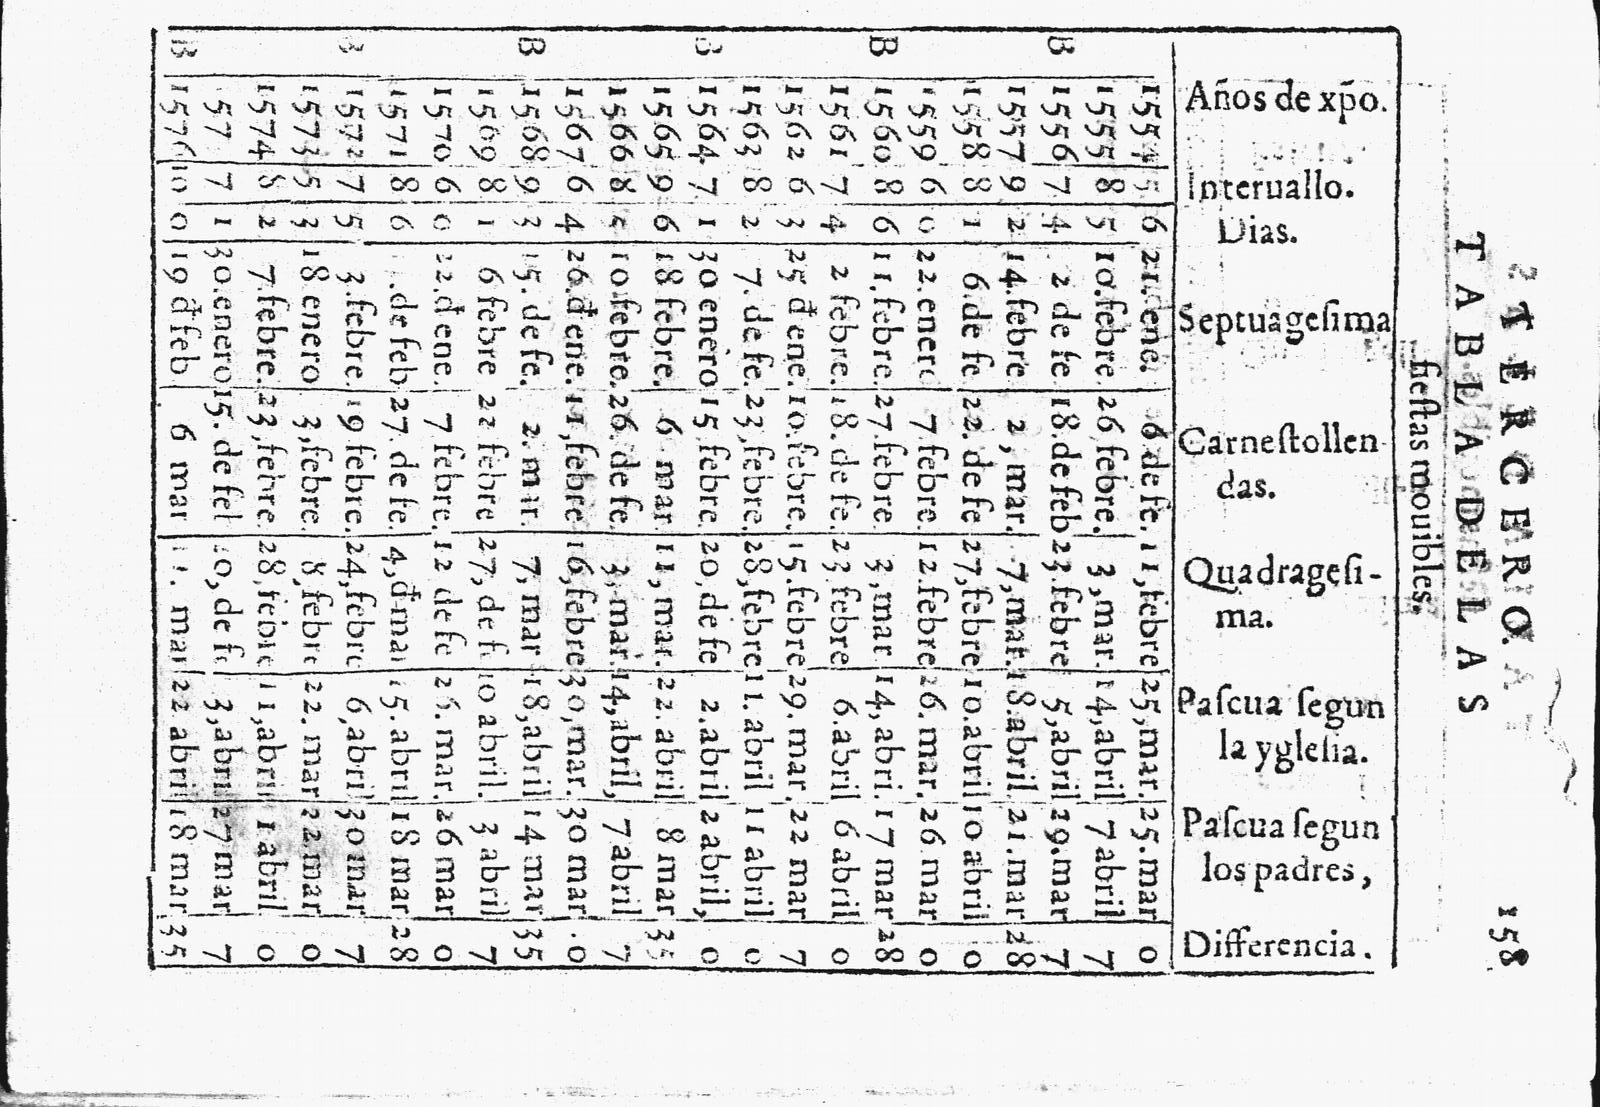 TERCERO. 158
TABLA DE LAS
fieſtas mouibles.
Años de xp̃o.
Interuallo.
Dias.
Septuageſima
Carneſtollen
das.
Quadrageſi-
ma.
Paſcua ſegun
la ygleſia.
Paſcua ſegun
los padres,
Differencia.
1554 5 6 21.ene. 6 de fe. 11,febre 25,mar. 25.mar 0
1555 8 5 10.febre. 26 febre. 3,mar. 14,abril 7 abril 7
B 1556 7 4 2 de fe 18.de feb 23.febre 5,abril 29.mar 7
1557 9 2 14.febre 2,mar. 7,mar. 18.abril 21.mar 28
1558 8 1 6.de fe 22.de fe 27,febre. 10.abril 10 abril 0
1559 6 0 22.enero 7 febre. 12.febre 26.mar. 26 mar 0
B 1560 8 6 11.febre. 27.febre. 3,mar 14,abri. 17 mar 28
1561 7 4 2 febre. 18.de fe. 23 febre 6.abril 6 abril 0
1562 6 3 25 đ ene. 10.febre. 15.febre 29.mar. 22 mar 7
1563 8 2 7.de fe. 23,febre. 28,febre 11.abril 11 abril 0
B 1564 7 1 30 enero 15 febre. 20,de fe 2.abril 2 abril, 0
1565 9 6 18 febre. 6 mar 11,mar. 22.abril 8 mar 35
1566 8 5 10.febre. 26.de fe. 3,mar. 14,abril, 7 abril 7
1567 6 4 26.đ ene. 11,febre 16,febre 30,mar. 30 mar .0
B 1568 9 3 15.de fe. 2.mar. 7,mar 18,abril 14 mar 35
1569 8 1 6 febre 22 febre 27,de 10 abril. 3 abril 7
1570 6 0 22.đ ene. 7 febre. 12 de fe 26.mar. 26 mar 0
1571 8 6 de feb 27.de fe. 4,đ mar 15.abril 18 mar 28
B 1572 7 5 3.febre. 19 febre. 24,febre 6,abril 30 mar 7
1573 5 3 18 enero 3,febre. 8,febre 22.mar 22.mar 0
1574 8 2 7.febre. 23,febre. 28,febre 11,abril 1 abril 0
157 7 1 30.enero 15.de 3,abril 27 mar 7
B 1576 10 0 19 đ feb 6 mar mar 22 abril 18 mar 35